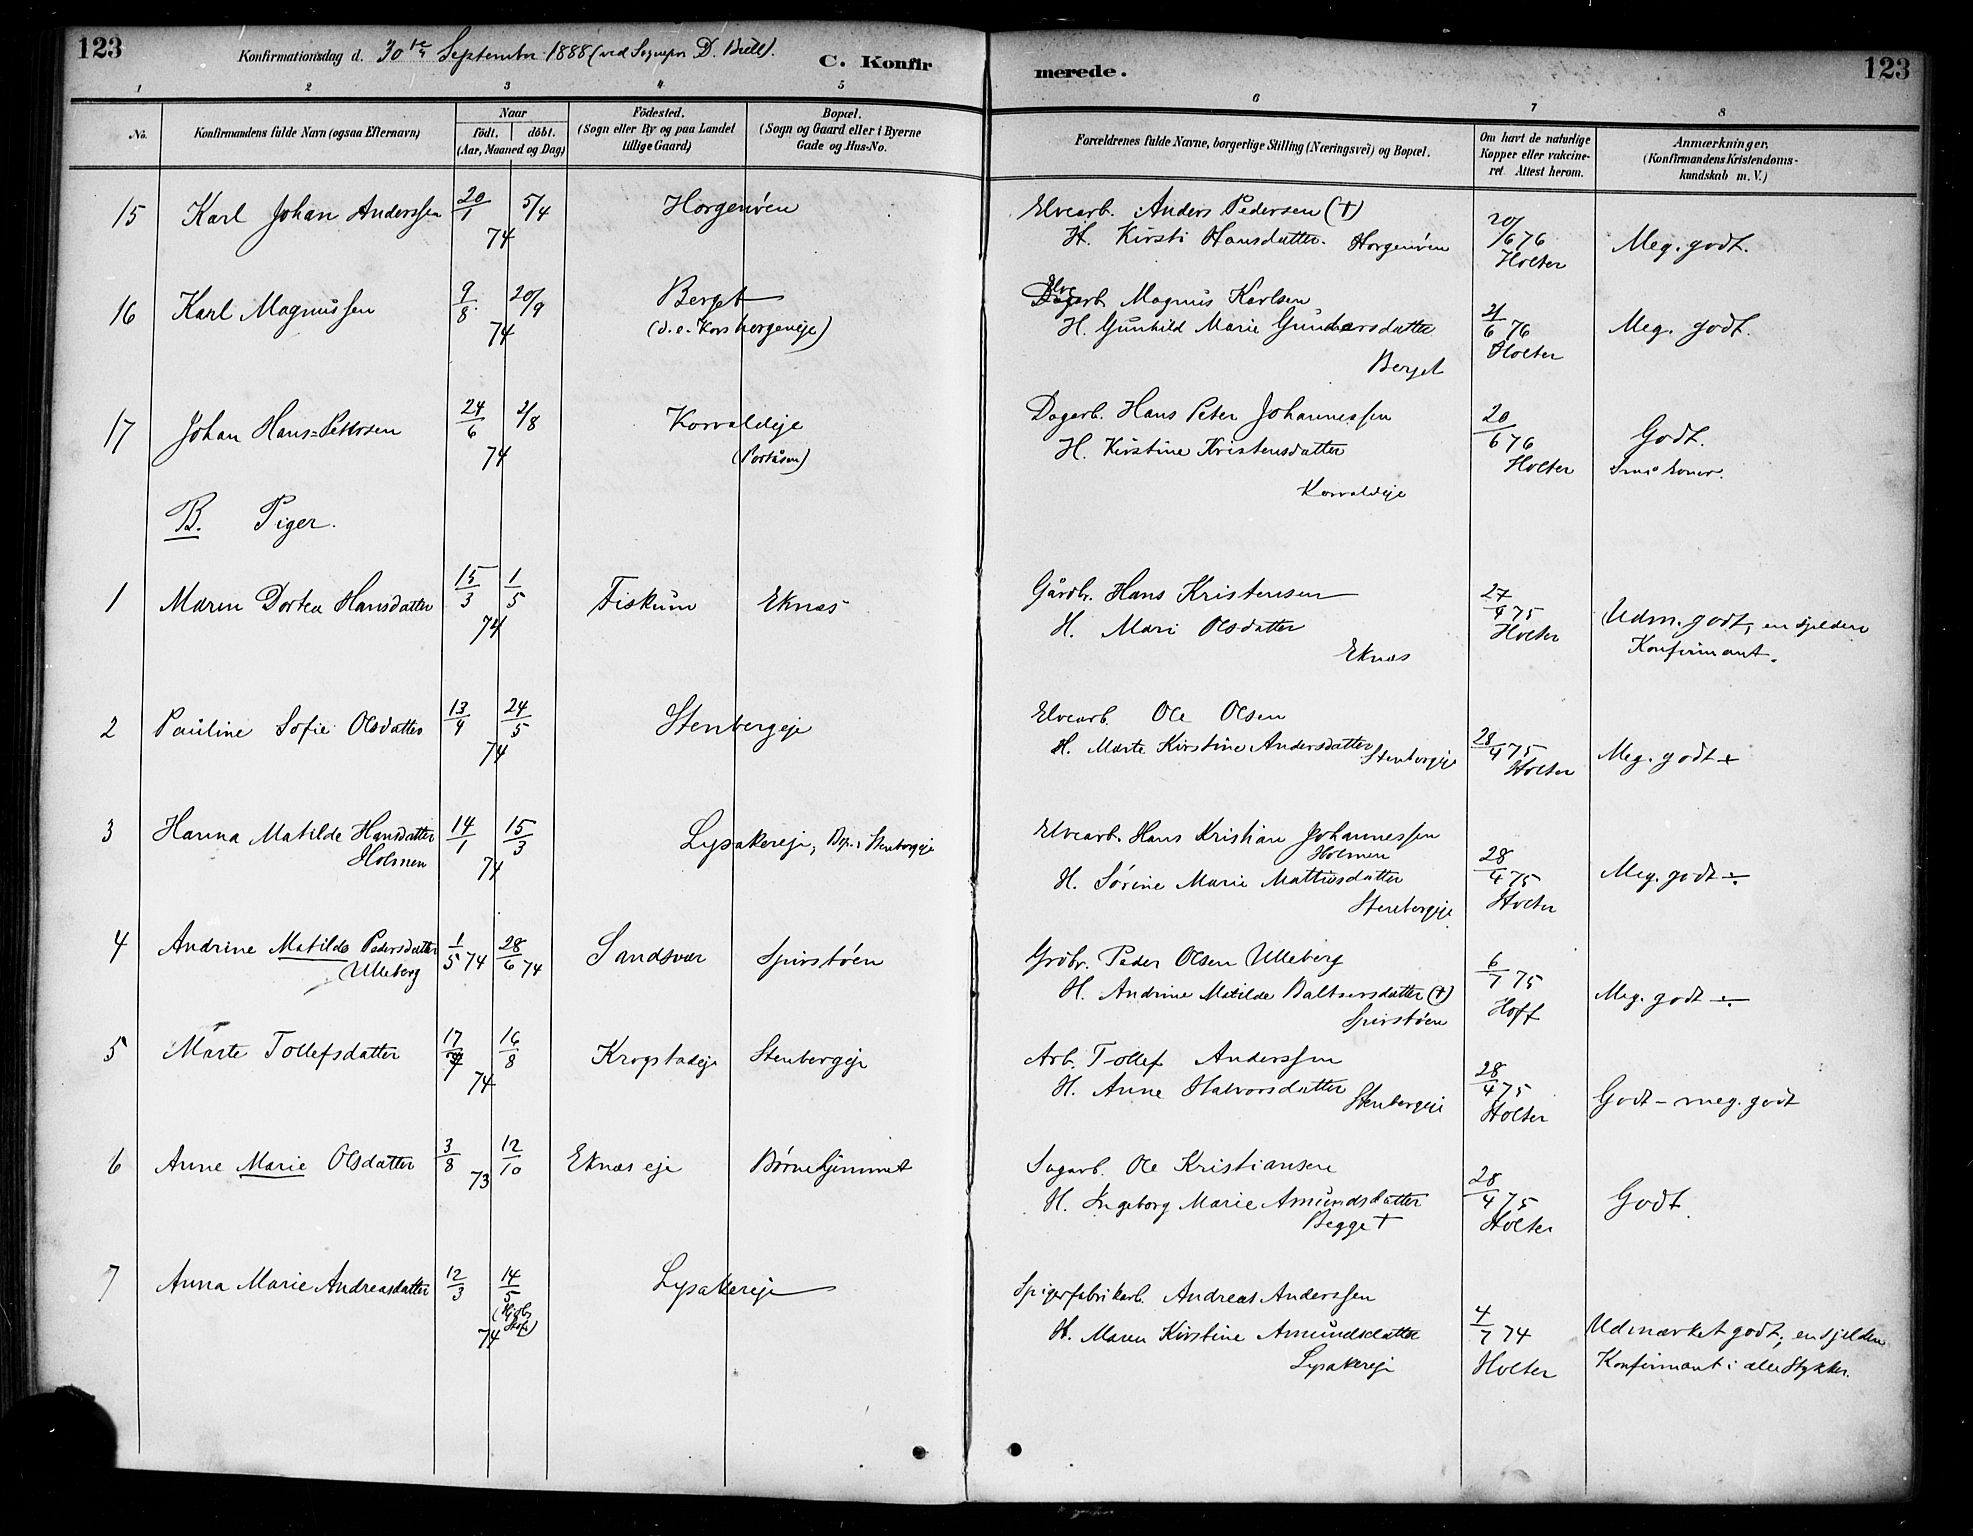 123
Konfirmationsdag d. 30te September 1888 (ved Sognepr. D. Bull).
C. Konfir
merede.
123
1 2 3 4 5 6 7 8
No.
Konfirmandens fulde Navn (ogsaa Efternavn)
Naar
födt. döbt.
(Aar, Maaned og Dag)
Födested.
(Sogn eller By og paa Landet
tillige Gaard)
Bopæl.
(Sogn og Gaard eller i Byerne
Gade og Hus-No.
Forældrenes fulde Navne, borgerlige Stilling (Næringsvei) og Bopæl.
Om havt de naturlige
Kopper eller vakcine-
ret. Attest herom.
Anmærkninger.
(Konfirmandens Kristendoms-
kundskab m. V.)
15 Karl Johan Anderssen 20/1 5/4 Horgenöen Elvearb. Anders Pedersen (†)
74 H. Kirsti Hansdatter. Horgenöen 20/6 76 Meg. godt.
Holter
16 Karl Magnussen 9/8 20/9 Berget Elve Dagarb. Magnus Karlsen
74 (d. e. Korshorgeneje) H. Gunhild Marie Gundersdatter 21/6 76 Meg. godt.
Berget Holter
17 Johan Hans=Petersen 24/6 2/8 Korvaldeje Dagarb. Hans Peter Johannessen 20/6 76 Godt.
74 (Portåsen) H. Kirstine Kristensdatter Holter
Korvaldeje
B. Piger.
1 Maren Dortea Hansdatter 15/3 1/5 Fiskum Eknæs Gårdbr. Hans Kristensen 27/4 75 Udm. godt, en sjelden
74 H. Mari Olsdatter Holter Konfirmant.
Eknæs
2 Pauline Sofie Olsdatter 13/4 24/5 Stenbergeje Elvearb. Ole Olsen
74 H. Marte Kirstine Andersdatter Stenbergeje 28/4 75 Meg. godt +
Holter
3 Hanna Matilde Hansdatter 14/1 15/3 Lysakereje, Bop. i Stenbergeje Elvearb. Hans Kristian Johannessen
Holmen 74 Holmen 28/4 75 Meg. godt ÷
H. Sörine Marie Mattiesdatter Holter
Stenbergeje
4 Andrine Matilde Pedersdatter 1/5 74 28/6 74 Sandsvær Spirstöen Grdbr. Peder Olsen Ulleberg 6/7 75
Ulleberg H. Andrine Matilde Baltsersdatter (†) Hoff Meg. godt ÷
Spirstöen
5 Marte Tollefsdatter 17/7 16/8 Krogstadeje Stenbergeje Arb. Tollef Anderssen 28/4 75
74 H. Anne Halvorsdatter Stenbergeje Holter Godt - meg. godt
6 Anne Marie Olsdatter 3/8 12/10 Eknæseje Børnehjemmet Sagarb. Ole Kristiansen 28/4 75
73 H. Ingeborg Marie Amundsdatter Holter Godt.
Begge †
7 Anna Marie Andreasdatter 12/3 14/5 Lysakereje Spigerfabrikarb. Andreas Anderssen
74 H. Maren Kirstine Amundsdatter 4/7 74 Udmærket godt; en sjelden
Lysakereje Holter Konfirmant i alle Stykker.